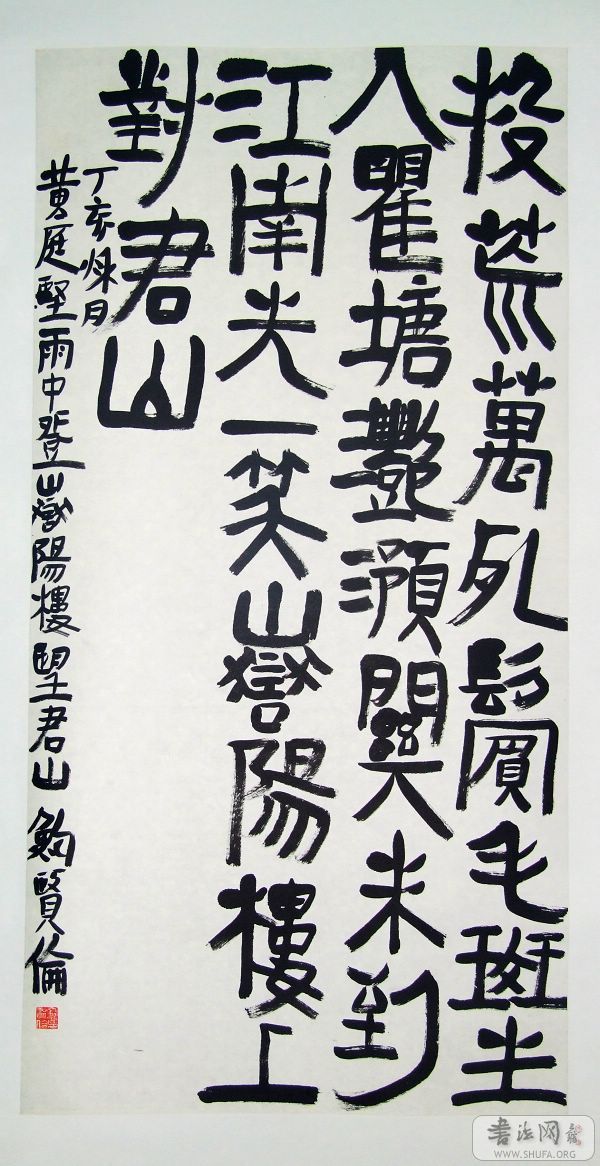 投荒萬死鬢毛斑生
入瞿塘灩澦關未到
江南先一笑嶽陽樓上
對君山
丁亥秋日
黄庭堅雨中登嶽陽樓望君山 鮑賢倫
書法网
WWW.SHUFA.ORG